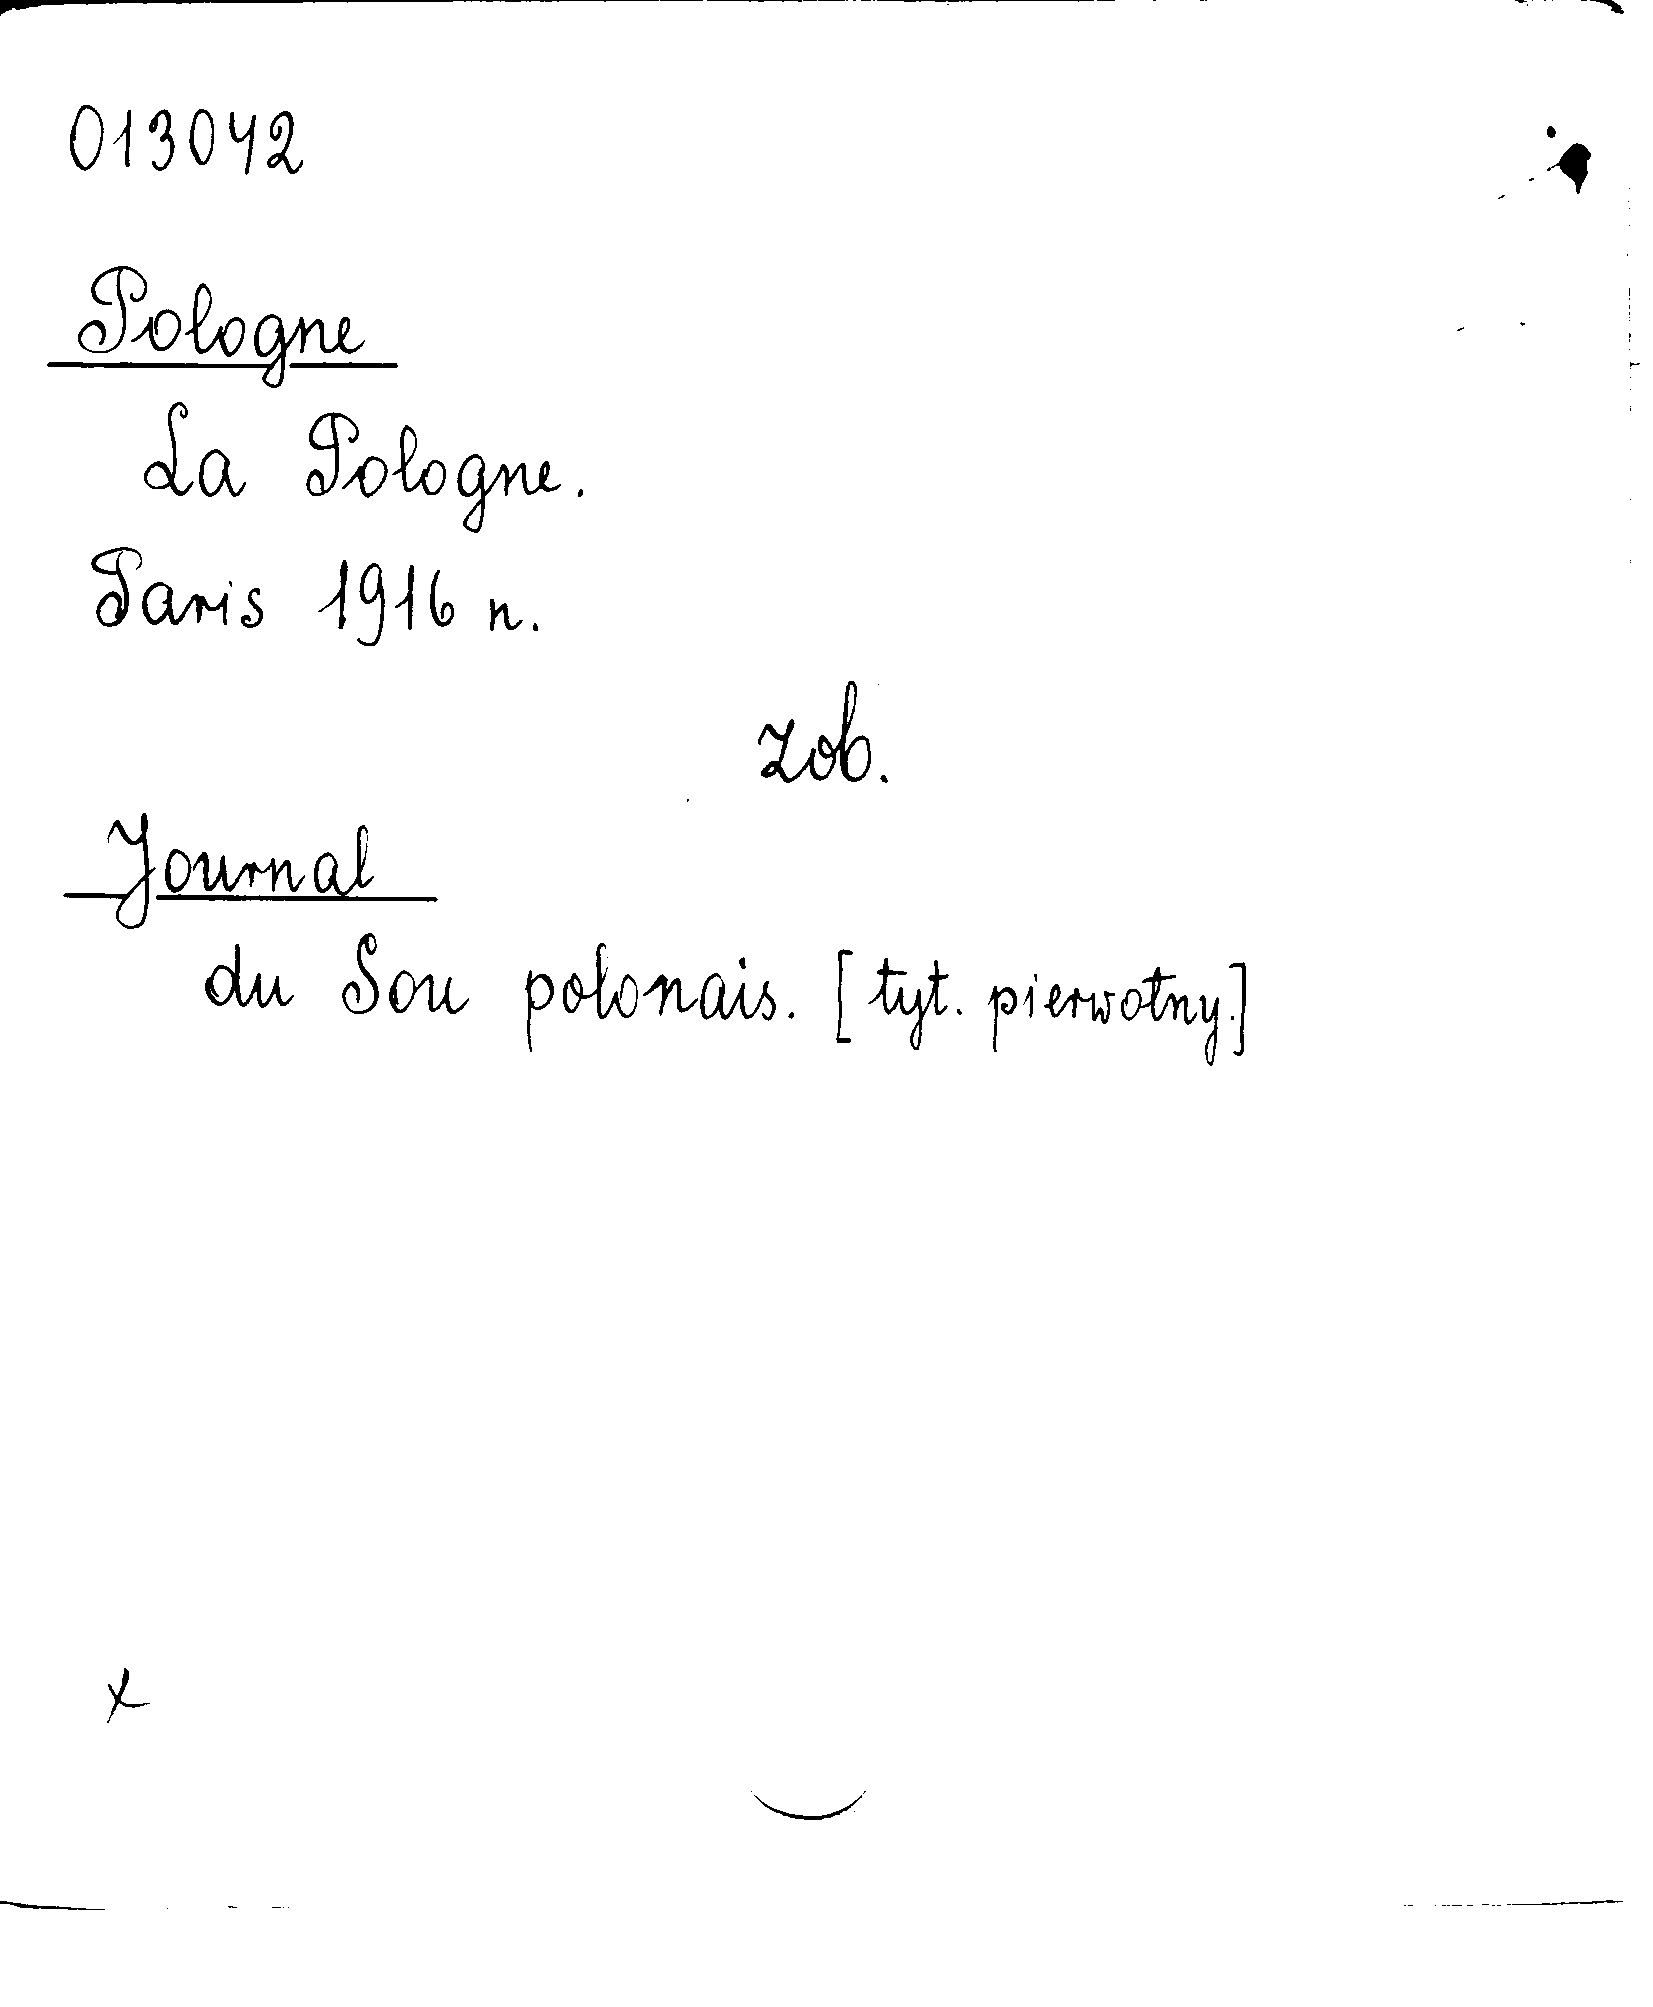 013042
Pologne
La Pologne.
Paris 1916 n.
zob.
Journal
du Sou polonais. [tyt. pierwotny.]
x